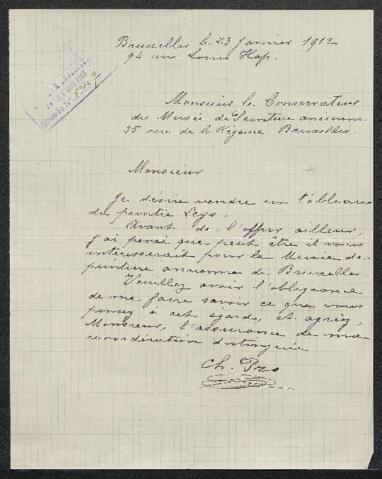 Bruxelles le 23 Janvier 1912
94 rue Louis Hap.
Monsieur le Conservateur
du Musée de Peinture ancienne
35 rue de la Régence Bruxelles
Monsieur
Je désire vendre un tableau
du peintre Leys.
Avant de l'offrir ailleurs,
j'ai pensé que peut être il vous
intéresserait pour le Musée de
peinture ancienne de Bruxelles.
Veuillez avoir l'obligeance
de me faire savoir ce que vous
pensez à cet égard, et agréez,
Monsieur, l'assurance de ma
considération distinguée
Ch.